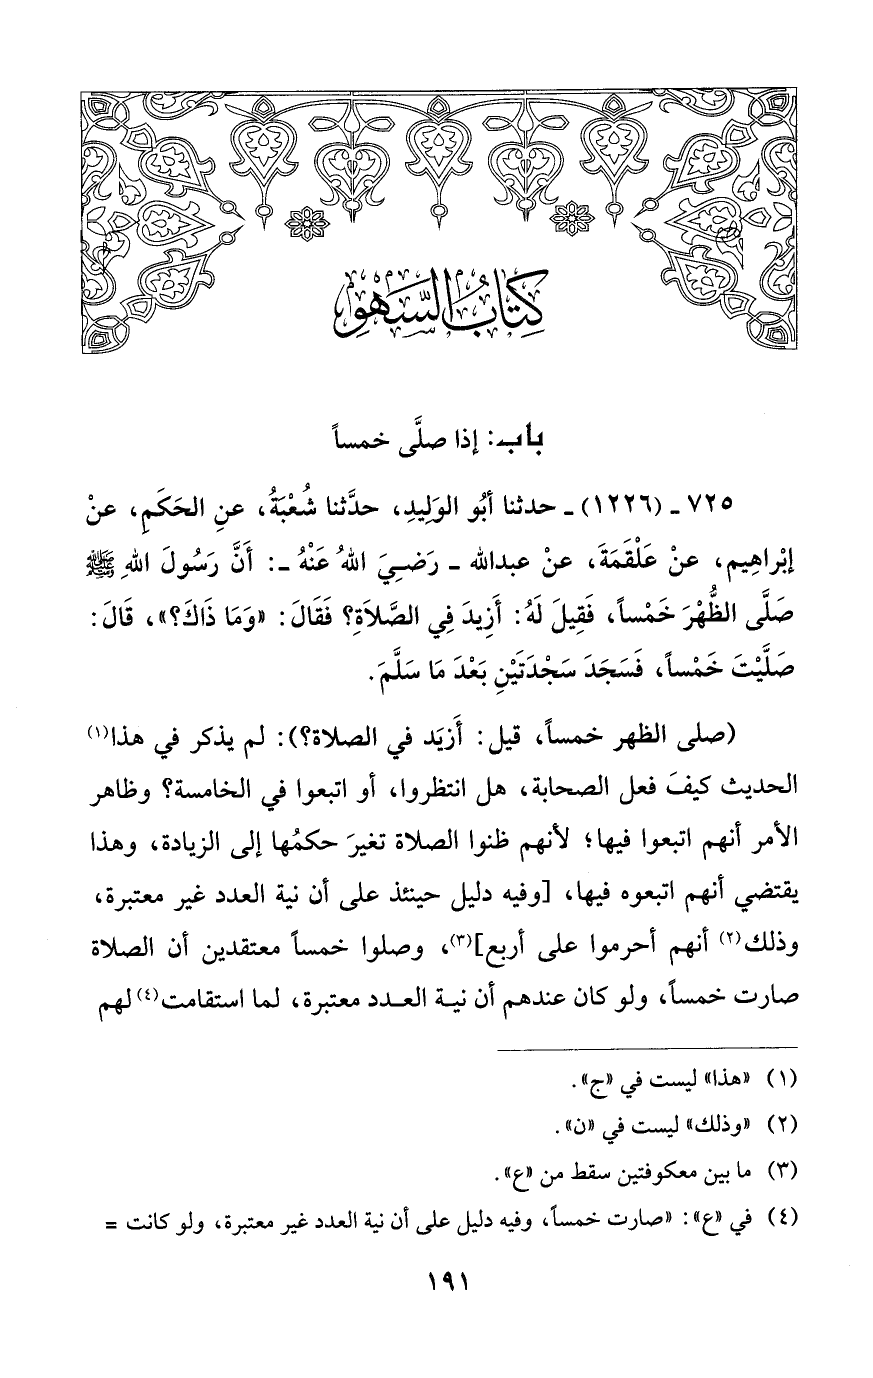 كِتَابُ السَّهْوِ
باب: إذا صلَّى خمساً
٧٢٥ ـ (١٢٢٦) ـ حدثنا أَبُو الوَلِيدِ، حدَّثنا شُعْبَةُ، عنِ الحَكَمِ، عنْ
إبْراهِيم، عنْ عَلْقَمَةَ، عنْ عبدالله ـ رَضِيَ اللهُ عَنْهُ ـ: أَنَّ رَسُولَ اللهِ ﷺ
صَلَّى الظُّهْرَ خَمْساً، فَقِيلَ لَهُ: أَزِيدَ فِي الصَّلاَةِ؟ فَقَالَ: «وَمَا ذَاكَ؟»، قَالَ:
صَلَّيْتَ خَمْساً، فَسَجَدَ سَجْدَتَيْنِ بَعْدَ مَا سَلَّمَ.
(صلى الظهر خمساً، قيل: أَزيَد في الصلاة؟): لم يذكر في هذا(١)
الحديث كيفَ فعل الصحابة، هل انتظروا، أو اتبعوا في الخامسة؟ وظاهر
الأمر أنهم اتبعوا فيها؛ لأنهم ظنوا الصلاة تغيرَ حكمُها إلى الزيادة، وهذا
يقتضي أنهم اتبعوه فيها، [وفيه دليل حينئذ على أن نية العدد غير معتبرة،
وذلك(٢) أنهم أحرموا على أربع](٣)، وصلوا خمساً معتقدين أن الصلاة
صارت خمساً، ولو كان عندهم أن نية العدد معتبرة، لما استقامت(٤) لهم
(١) «هذا» ليست في «ج».
(٢) «وذلك» ليست في «ن».
(٣) ما بين معكوفتين سقط من «ع».
(٤) في «ع»: «صارت خمساً، وفيه دليل على أن نية العدد غير معتبرة، ولو كانت =
١٩١